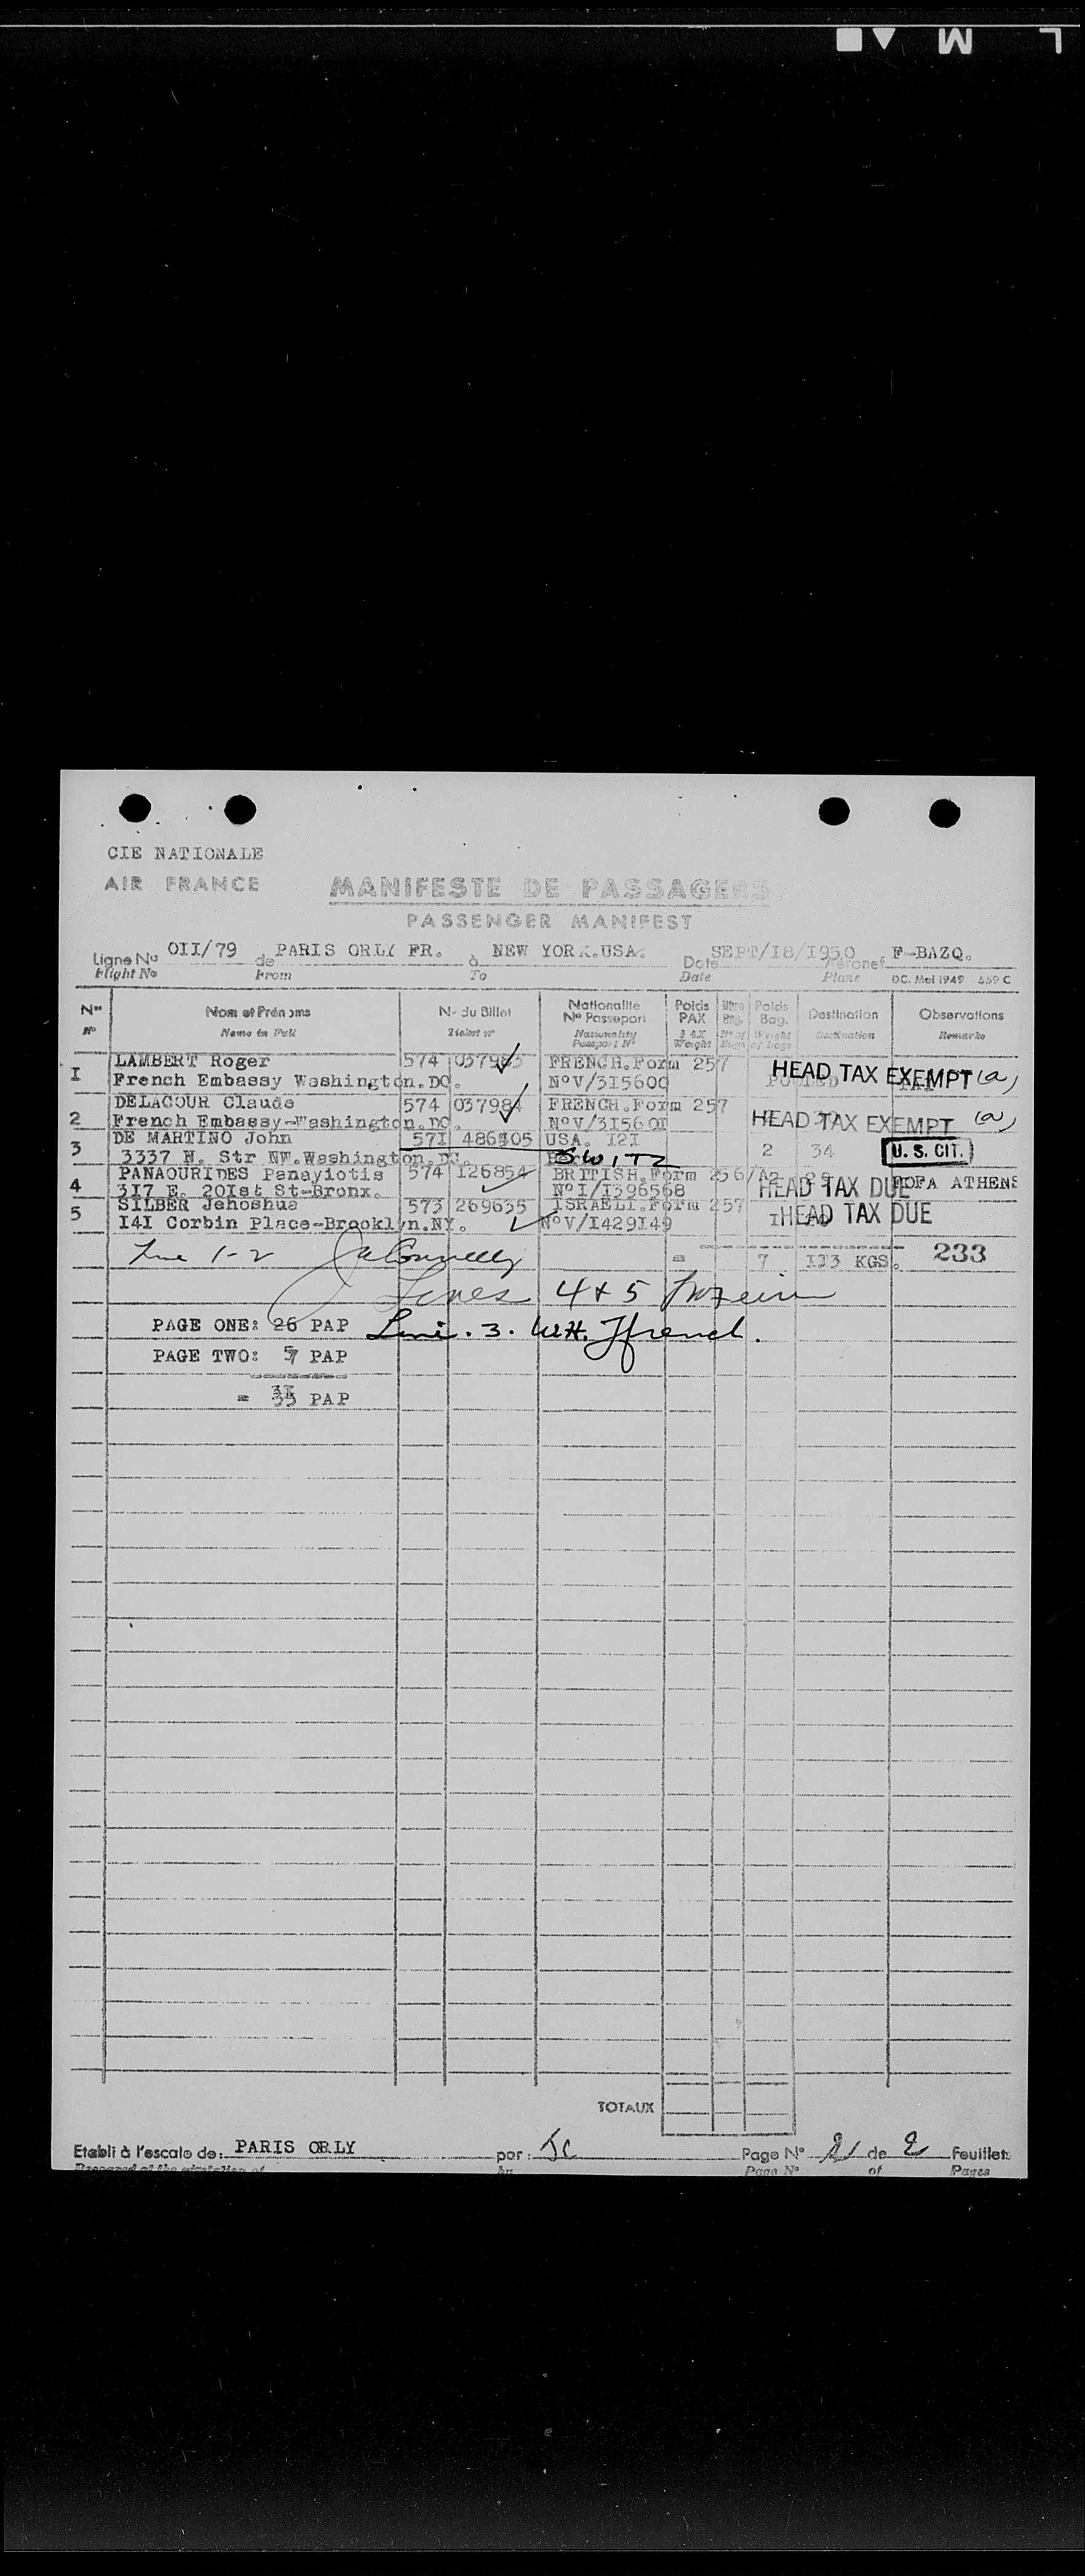 CIE NATIONALE
AIR FRANCE
MANIFESTE DE PASSAGERS
PASSENGER MANIFEST
Ligne No OII/79 de PARIS ORLY FR. à NEW YORK.USA. Date SEPT/18/1950 F-BAZQ.
Flight No From To Date Plane DC. Mai 1949 559 C
Nos Nom et Prénoms No du Billet Nationalite No Passeport Poids PAX Poids Bag. Destination Observations
No Name in Full Ticket no Nationality Passport No Weight Destination Remarks
I LAMBERT Roger 574 037983 FRENCH.Form 257 HEAD TAX EXEMPT (a)
French Embassy Washington.DC. NoV/315600
2 DELACOUR Claude 574 037984 FRENCH.Form 257 HEAD TAX EXEMPT (a)
French Embassy-Washington.DC. NoV/31560I
3 DE MARTINO John 57I 486405 USA. I2I 2 34 U. S. CIT.
3337 N. Str NW.Washington.DC. SWITZ
4 PANAOURIDES Panayiotis 574 126854 BRITISH.Form 256/A2 HEAD TAX DUE ROFA ATHENS
317 E. 20Ist St-Bronx. NoI/I396568
5 SILBER Jehoshua 573 269635 ISRAELI.Form 257 I HEAD TAX DUE
I4I Corbin Place-Brooklyn.NY. NoV/I429I49
Line 1-2 JaConnelly = 7 II3 KGS. 233
Lines 4+5
PAGE ONE: 26 PAP Line. 3. W.H. Ffrench.
PAGE TWO: 5 PAP
= 3I PAP
TOTAUX
Etabli à l'escale de: PARIS ORLY par: JC Page No 2 de 2 Feuillets
Prepared at the station of Page No of Pages